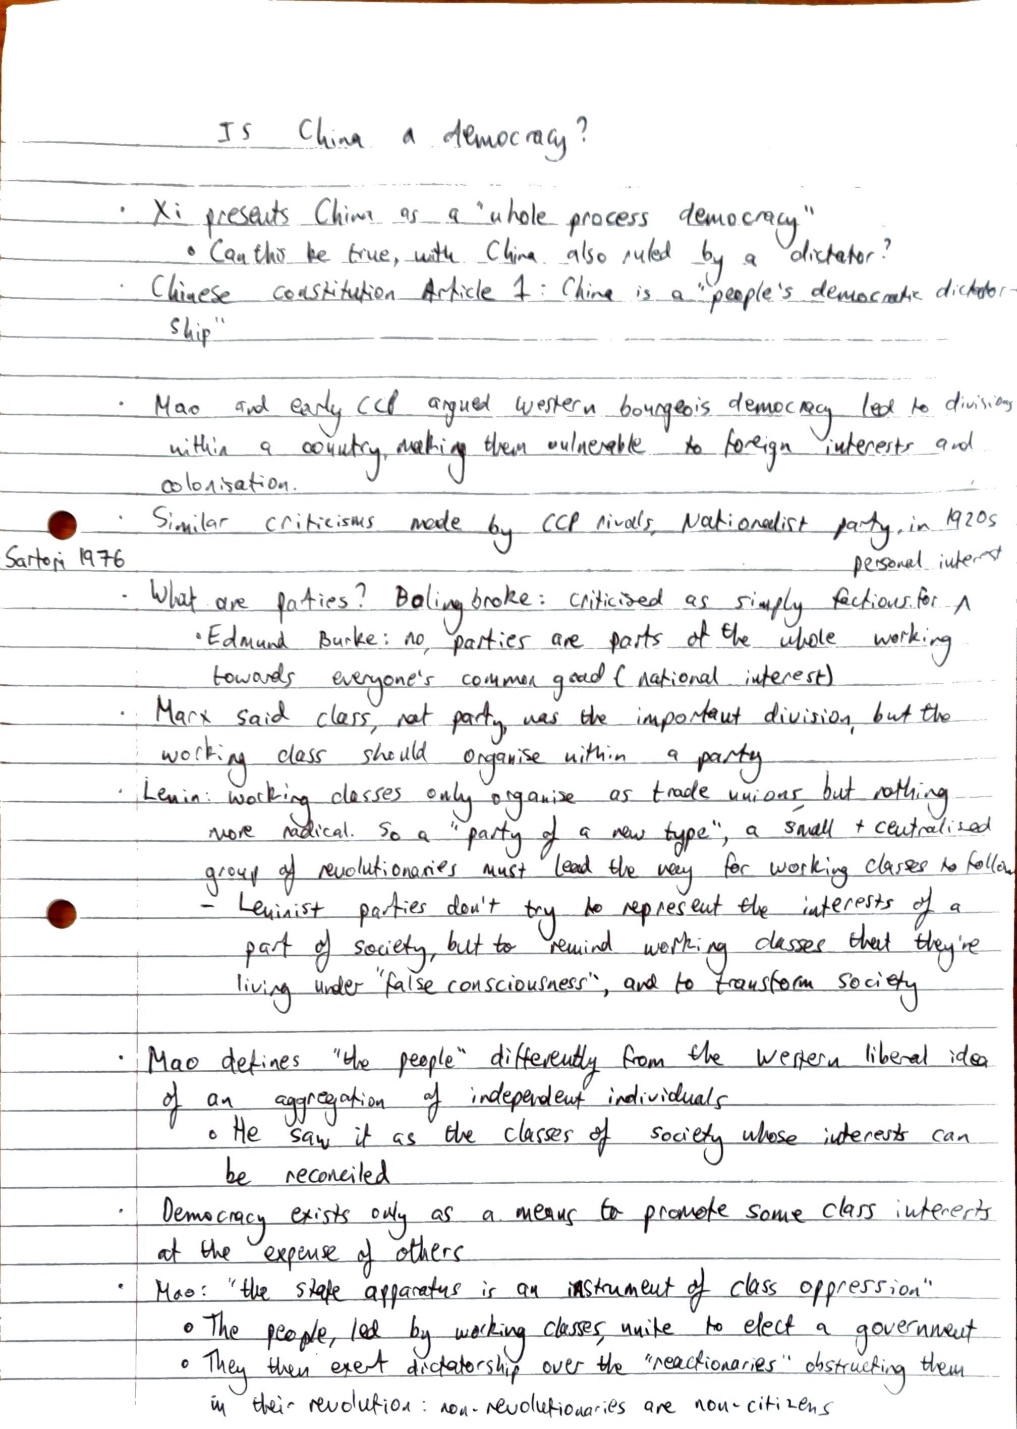 Is China a democracy?
· Xi presents China as a "whole process democracy"
• Can this be true, with China also ruled by a dictator?
· Chinese constitution Article 1: China is a "people's democratic dictator-
ship"
· Mao and early CCP argued Western bourgeois democracy led to divisions
within a country, making them vulnerable to foreign interests and
colonisation.
· Similar criticisms made by CCP rivals, Nationalist party, in 1920s
Sartori 1976
personal interest
· What are parties? Bolingbroke: criticised as simply factions for ^
• Edmund Burke: no, parties are parts of the whole working
towards everyone's common good (national interest)
· Marx said class, not party, was the important division, but the
working class should organise within a party
· Lenin: working classes only organise as trade unions, but nothing
more radical. So a "party of a new type", a small + centralised
group of revolutionaries must lead the way for working classes to follow
- Leninist parties don't try to represent the interests of a
part of society, but to remind working classes that they're
living under "false consciousness", and to transform society
· Mao defines "the people" differently from the Western liberal idea
of an aggregation of independent individuals
• He saw it as the classes of society whose interests can
be reconciled
· Democracy exists only as a means to promote some class interests
at the expense of others
· Mao: "the state apparatus is an instrument of class oppression"
• The people, led by working classes, unite to elect a government
• They then exert dictatorship over the "reactionaries" obstructing them
in their revolution: non-revolutionaries are non-citizens